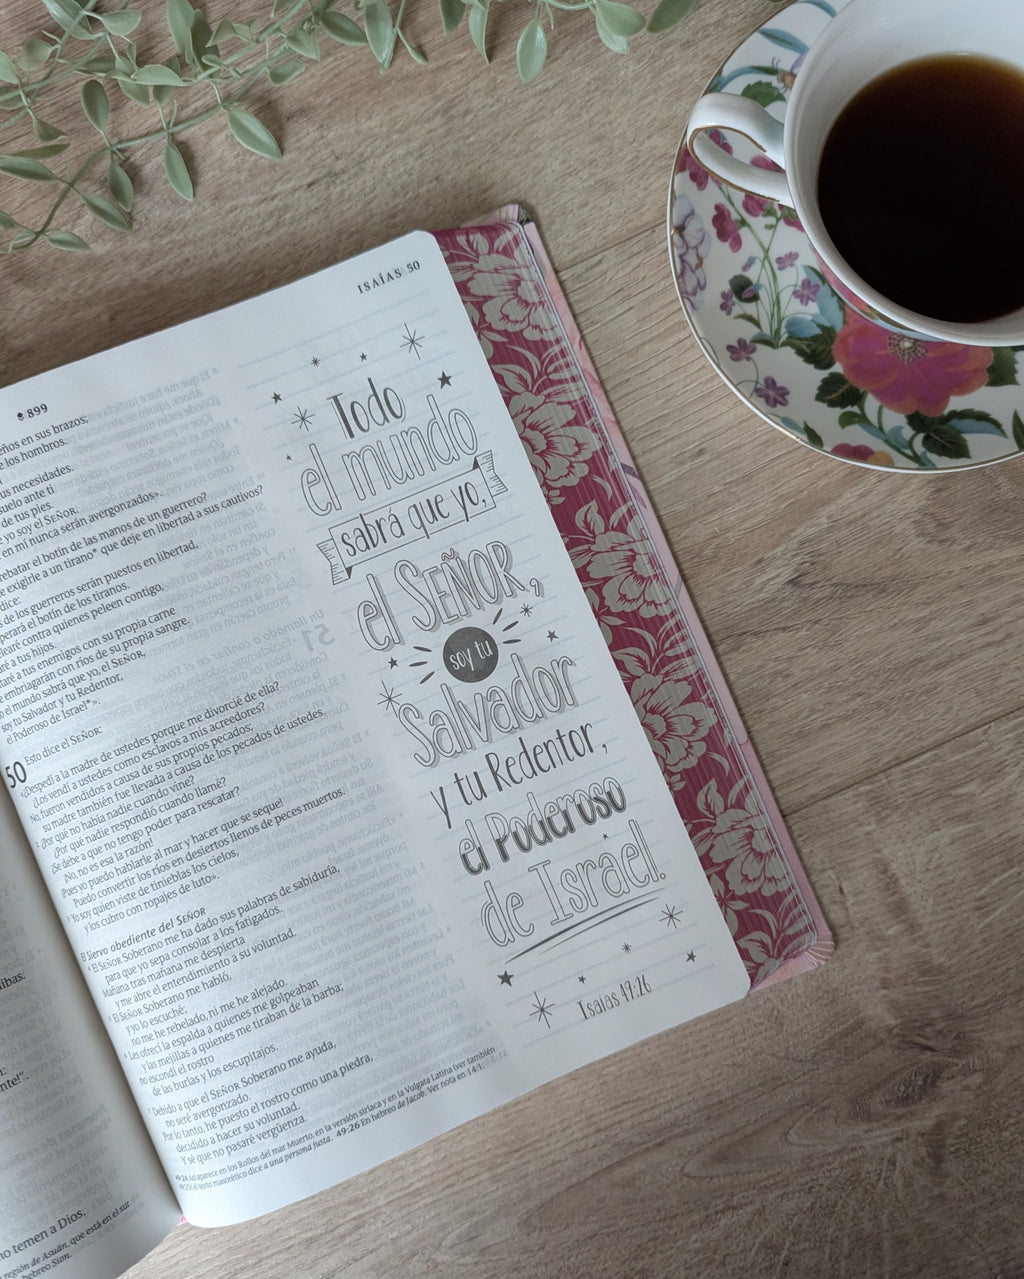 ISAÍAS 50
899
eños en sus brazos;
e los hombros.
us necesidades.
suelo ante ti
de tus pies.
e yo soy el SEÑOR.
en mí nunca serán avergonzados».
rebatar el botín de las manos de un guerrero?
e exigirle a un tirano* que deje en libertad a sus cautivos?
dice:
s de los guerreros serán puestos en libertad,
perará el botín de los tiranos.
learé contra quienes peleen contigo,
aré a tus hijos.
taré a tus enemigos con su propia carne
embriagarán con ríos de su propia sangre.
o el mundo sabrá que yo, el SEÑOR,
soy tu Salvador y tu Redentor,
el Poderoso de Israel*».
50 Esto dice el SEÑOR:
«¿Despedí a la madre de ustedes porque me divorcié de ella?
¿Los vendí a ustedes como esclavos a mis acreedores?
No, fueron vendidos a causa de sus propios pecados;
su madre también fue llevada a causa de los pecados de ustedes.
2 ¿Por qué no había nadie cuando vine?
¿Por qué nadie respondió cuando llamé?
¿Se debe a que no tengo poder para rescatar?
¡No, no es esa la razón!
¡Pues yo puedo hablarle al mar y hacer que se seque!
Puedo convertir los ríos en desiertos llenos de peces muertos.
3 Yo soy quien viste de tinieblas los cielos,
y los cubro con ropajes de luto».
El Siervo obediente del SEÑOR
4 El SEÑOR Soberano me ha dado sus palabras de sabiduría,
para que yo sepa consolar a los fatigados.
Mañana tras mañana me despierta
y me abre el entendimiento a su voluntad.
5 El SEÑOR Soberano me habló,
y yo lo escuché;
no me he rebelado, ni me he alejado.
6 Les ofrecí la espalda a quienes me golpeaban
y las mejillas a quienes me tiraban de la barba;
no escondí el rostro
de las burlas y los escupitajos.
7 Debido a que el SEÑOR Soberano me ayuda,
no seré avergonzado.
Por lo tanto, he puesto el rostro como una piedra,
decidido a hacer su voluntad.
Y sé que no pasaré vergüenza.
49:24 Así aparece en los Rollos del mar Muerto, en la versión siríaca y en la Vulgata Latina (ver también
49:25); el texto masorético dice a una persona justa. 49:26 En hebreo de Jacob. Ver nota en 14:1.
Todo
el mundo
sabrá que yo,
el SEÑOR,
soy tu
Salvador
y tu Redentor,
el Poderoso
de Israel.
Isaías 49:26
no temen a Dios.
región de Asuán, que está en el sur
hebreo Sion.